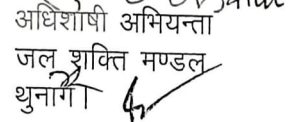 अधिशाषी अभियन्ता
जल शक्ति मण्डल
थुनाग।